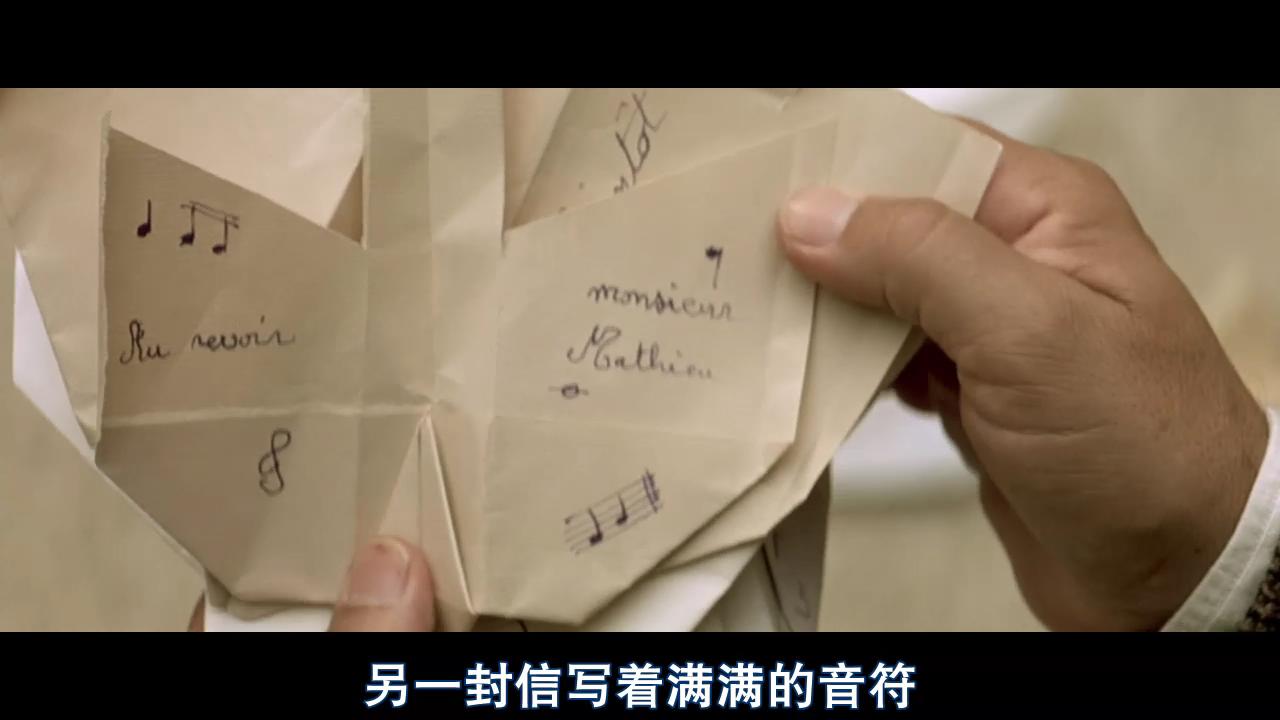 Au revoir
monsieur
Mathieu
另一封信写着满满的音符